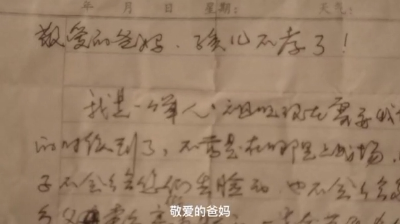 年 月 日 星期： 天气：
敬爱的爸妈、孩儿不孝了！
我是一个军人，祖国现在需要我
的时候到了，不管是在哪里上战场，
子不会给您们丢脸的，也不会给
敬爱的爸妈